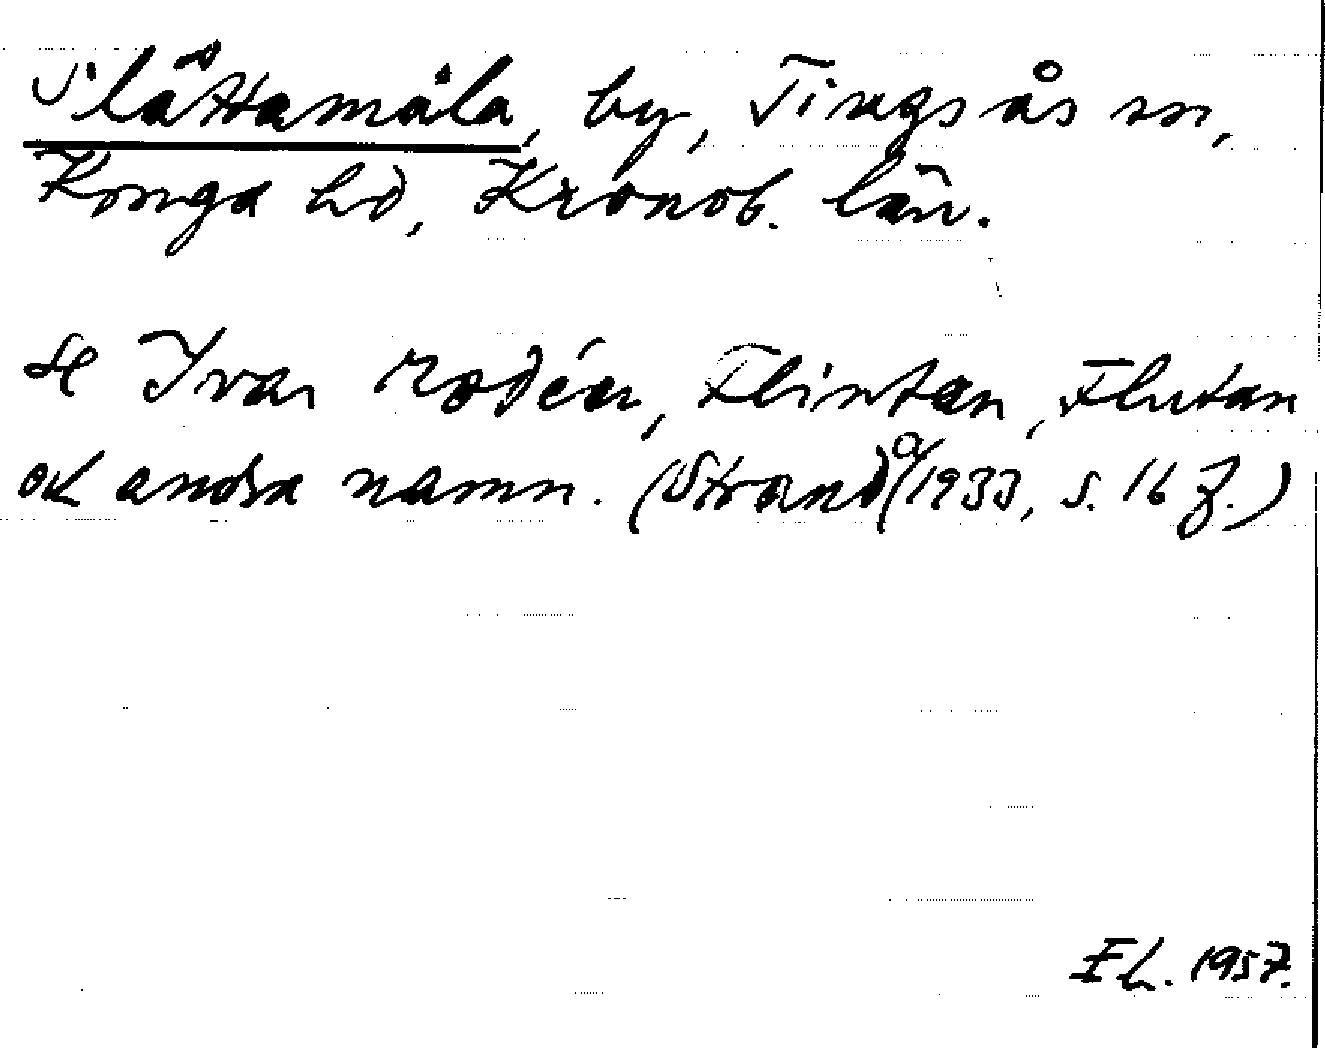 Slättamåla, by, Tingsås sn,
Konga hd, Kronob. län.
se Ivar Modéer, Flintan, Flutan
och andra namn. (Strand 9/1933, s. 16 f.)
E L. 1957.